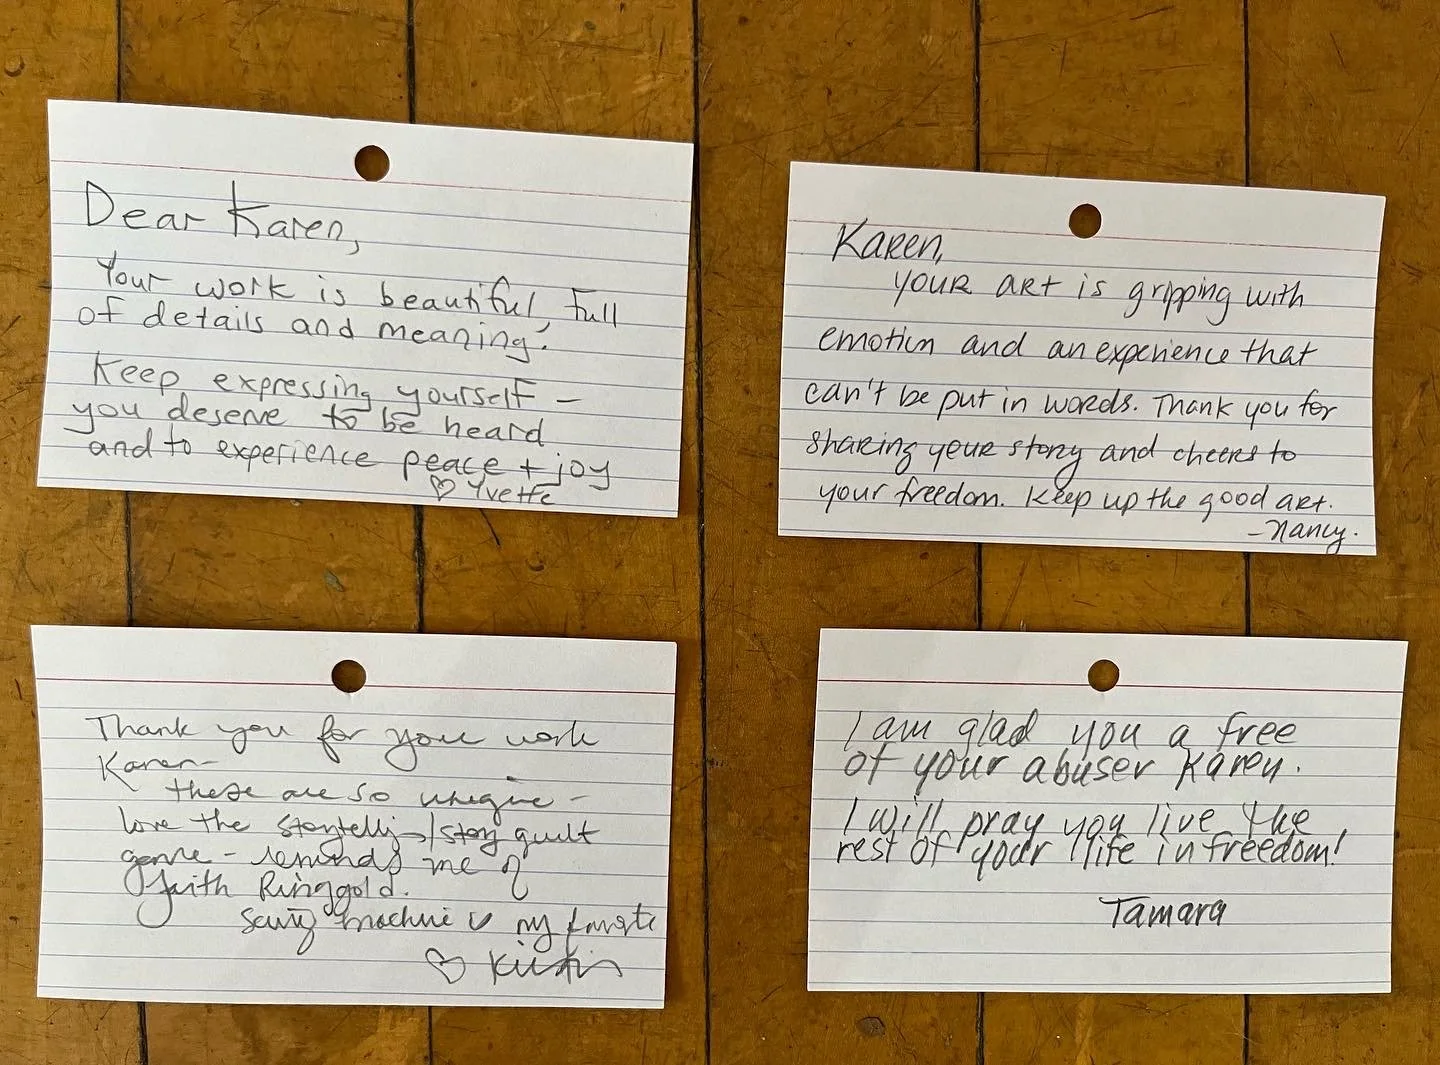 Dear Karen,
Your work is beautiful, full
of details and meaning.
Keep expressing yourself –
you deserve to be heard
and to experience peace + joy
♡ Yvette
Karen,
your art is gripping with
emotion and an experience that
can't be put in words. Thank you for
sharing your story and cheers to
your freedom. Keep up the good art.
- Nancy.
Thank you for your work
Karen-
these are so unique -
love the storytelling/story quilt
genre - reminds me of
Faith Ringgold.
Sewing machine is my favorite
♡ Kirstin
I am glad you a free
of your abuser Karen.
I will pray you live the
rest of your life in freedom!
Tamara